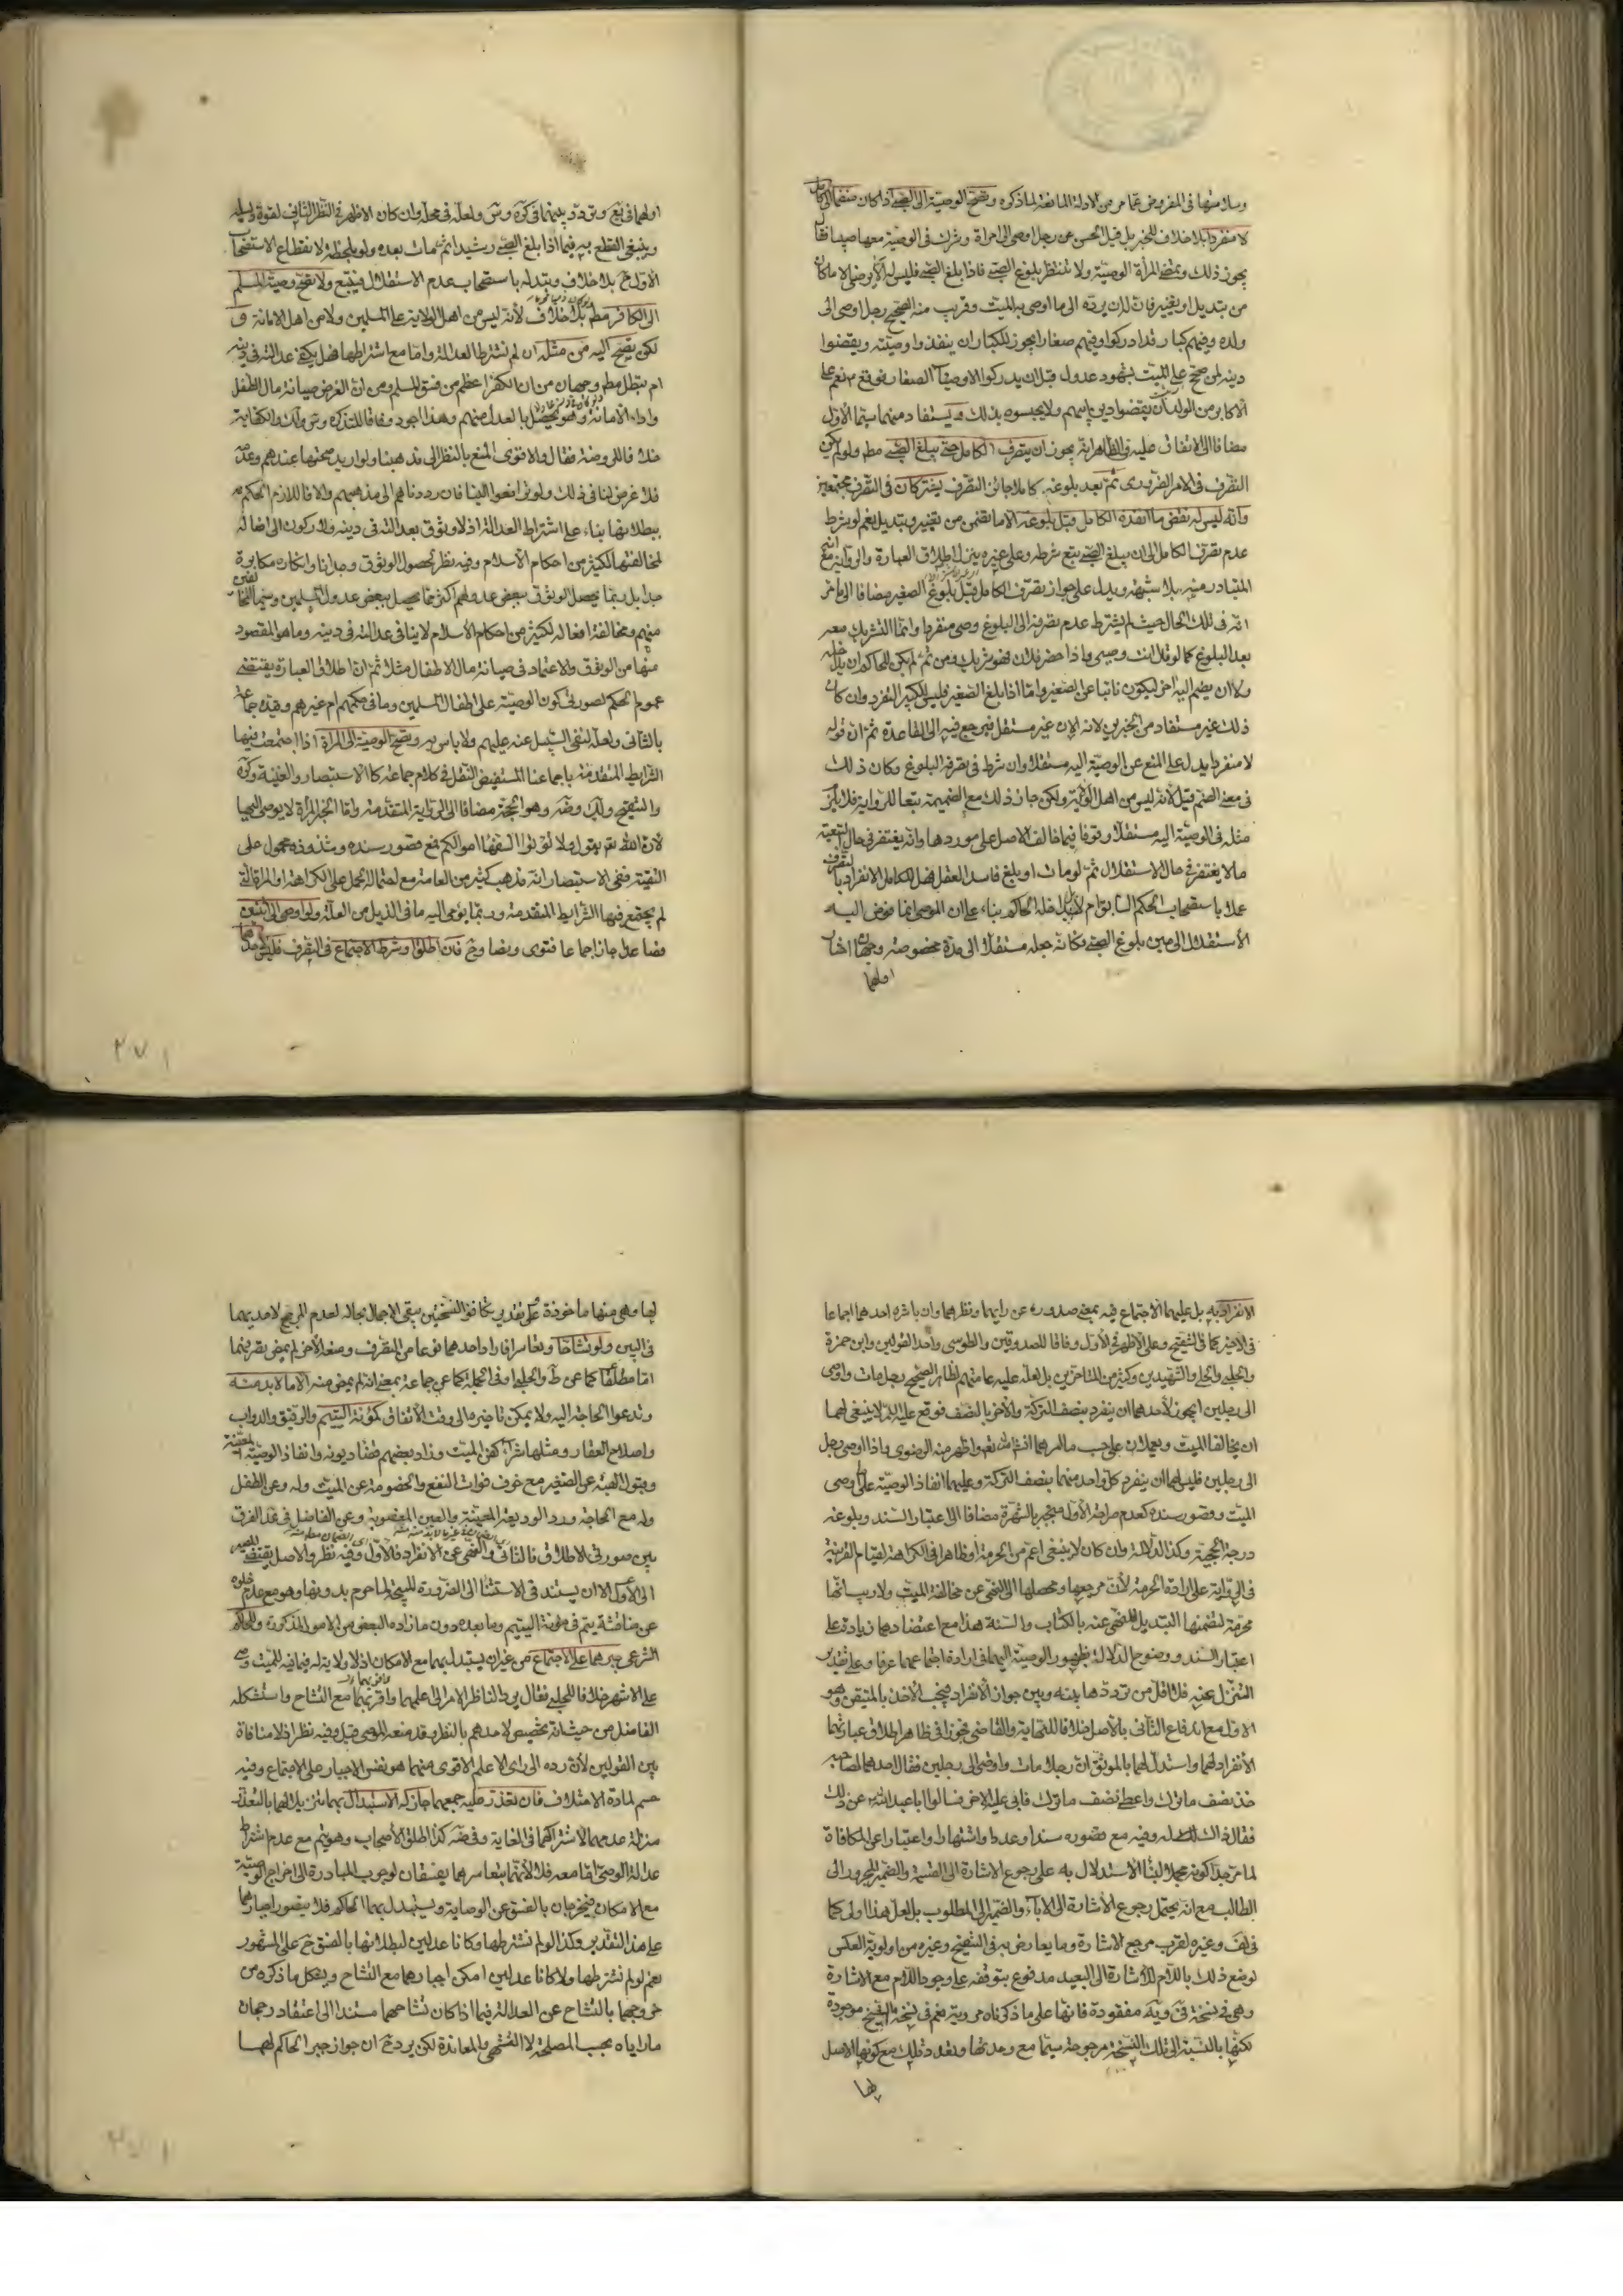 وسلامتها في المفروض عما مر من الادلة المانعة لما ذكره وتصح الوصية الى الصبي اذا كان منضما الى كامل
لا منفردا بلا خلاف للخبر بل قيل الحسن عن رجل اوصى الى امراة وشرك في الوصية معها صبيا فقال
يجوز ذلك وتمضي المرأة الوصية ولا تنتظر بلوغ الصبي فاذا بلغ الصبي فليس له الا يرضى الا ما كان
من تبديل او تغيير فان له ان يرده الى ما اوصى به الميت وقريب منه الصحيح رجل اوصى الى
ولده وفيهم كبار قد ادركوا وفيهم صغار ايجوز للكبار ان ينفذوا وصيته ويقضوا
دينه لمن صح على الميت بشهود عدول قبل ان يدركوا الاوصياء الصغار فوقع ع نعم على
الاكابر من الولد ان يقضوا دين ابيهم ولا يحبسوه بذلك ويستفاد منهما سيما الاول
مضافا الى الاتفاق عليه في الظاهر انه يجوز ان يتصرف الكامل حتى يبلغ الصبي مطم ولو لم يكن
التصرف في الامر الضروري ثم بعد بلوغه كاملا جائز التصرف يشتركان في التصرف مجتمعين
وانه ليس له نقض ما انفذه الكامل قبل بلوغه الا ما تضمن من تغيير وتبديل نعم لو شرط
عدم تصرف الكامل الى ان يبلغ الصبي يتبع شرطه وعلى غيره ينزل اطلاق العبارة والرواية مع انه
المتبادر منه بلا شبهة ويدل على جواز تصرف الكامل قبل بلوغ الصغير مضافا الى ما مر
انه في تلك الحال حيث لم يشترط عدم تصرفه الى البلوغ وصي منفردا وانما التشريك معه
بعد البلوغ كما لو قال انت وصيي واذا حضر فلان فهو شريك ومن ثم لم يكن للحاكم ان يداخله
ولا ان يضم اليه اخر ليكون نائبا عن الصغير واما اذا بلغ الصغير فليس للكبير التفرد وان كان
ذلك غير مستفاد من الخبرين لانه الان غير مستقل فيرجع فيه الى القاعدة ثم ان قوله
لا منفردا يدل على المنع عن الوصية اليه مستقلا وان شرط في تصرفه البلوغ وكان ذلك
في معنى الضم قيل لانه ليس من اهل الولاية ولكن جاز ذلك مع الضميمة تبعا للرواية فلا يلزم
مثله في الوصية اليه مستقلا وقوفا فيما خالف الاصل على موردها وانه يغتفر في حال التبعية
ما لا يغتفر في حال الاستقلال ثم لو مات او بلغ فاسد العقل فهل للكامل الانفراد بالتصرف
عملا باستصحاب الحكم السابق ام لا بل يداخله الحاكم بناء على ان الموصي انما فوض اليه
الاستقلال الى حين بلوغ الصبي فكانه جعله مستقلا الى مدة مخصوصة وجهان اشار
اولهما
اولهما في نع وتردد بينهما في كره وس ولعله في محله وان كان الاظهر في النظر الثاني لقوة دليله
وينبغي القطع به فيما اذا بلغ الصبي رشيدا ثم مات بعده ولو بلحظة لانقطاع الاستصحاب
الاول ح بلا خلاف وتبدله باستصحاب عدم الاستقلال فيتبع ولا تصح وصية المسلم
الى الكافر مطم بلا خلاف لانه ليس من اهل الولاية على المسلمين ولا من اهل الامانة و
لكن يصح اليه من مثله ان لم نشترط العدالة واما مع اشتراطها فهل يكفي عدالته في دينه
ام تبطل مطم وجهان من ان الكفر اعظم من فسق المسلم ومن ان الغرض صيانة مال الطفل
واداء الامانة وهو يحصل بالعدل منهم وهذا اجود وفاقا للتذكرة وس ولك والكفاية
خلافا للروضة فقال والاقوى المنع بالنظر الى مذهبنا ولو اريد صحتها عندهم وعدمه
فلا غرض لنا في ذلك ولو ترافعوا الينا فان رددناهم الى مذهبهم والا فاللازم الحكم
ببطلانها بناء على اشتراط العدالة اذ لا وثوق بعدالته في دينه ولا ركون الى افعاله
لمخالفتها لكثير من احكام الاسلام وفيه نظر لحصول الوثوق وجدانا وانكاره مكابرة
جدا بل ربما يحصل الوثوق ببعض عدولهم اكثر مما يحصل ببعض عدول المسلمين وسيما المخالفين
منهم ومخالفة افعاله لكثير من احكام الاسلام لا ينافي عدالته في دينه وما هو المقصود
منها من الوثوق والاعتماد في صيانة مال الاطفال مثلا ثم ان اطلاق العبارة يقتضي
عموم الحكم لصورتي كون الوصية على اطفال المسلمين وما في حكمهم ام غيرهم وقيده جماعة
بالثاني ولعله لنفي السبيل عنه عليهم ولا باس به وتصح الوصية الى المراة اذا اجتمعت فيها
الشرايط المتقدمة باجماعنا المستفيض النقل في كلام جماعة كالاستبصار والغنية وكره
والتنقيح ولك وضه وهو الحجة مضافا الى الرواية المتقدمة واما الخبر المراة لا يوصى اليها
لان الله تع يقول ولا تؤتوا السفهاء اموالكم فمع قصور سنده وشذوذه محمول على
التقية ففي الاستبصار انه مذهب كثير من العامة مع احتماله الحمل على الكراهة او المراة التي
لم يجتمع فيها الشرايط المتقدمة وربما يومي اليه ما في الذيل من العلة ولو اوصى الى اثنين
فصاعدا جاز اجماعا فتوى ونصا وح فان اطلق او شرط الاجتماع في التصرف فليس لاحدهما
٢٧١
الانفراد به بل عليهما الاجتماع فيه بمعنى صدوره عن رايهما ونظرهما وان باشره احدهما اجماعا
في الاخير كما في التنقيح وعلى الاظهر في الاول وفاقا للصدوقين والطوسي واحد القولين وابن حمزة
والحلبي والحلي والشهيدين وكثير من المتاخرين بل لعله عليه عامتهم لظاهر الصحيح رجل مات واوصى
الى رجلين ايجوز لاحدهما ان ينفرد بنصف التركة والاخر بالنصف فوقع عليه السلام لا ينبغي لهما
ان يخالفا الميت ويعملان على حسب ما امرهما انشاء الله تعم واظهر منه الرضوي واذا اوصى رجل
الى رجلين فليس لهما ان ينفرد كل واحد منهما بنصف التركة وعليهما انفاذ الوصية على ما اوصى
الميت وقصور سنده كعدم صراحة الاول منجبر بالشهرة مضافا الى اعتبار السند وبلوغه
درجة الحجية وكذا الدلالة وان كان لا ينبغي اعم من الحرمة او ظاهرا في الكراهة لقيام القرينة
في الرواية على ارادة الحرمة لان مرجعها ومحصلها الى النهي عن مخالفة الميت ولا ريب انها
محرمة لتضمنها التبديل المنهي عنه بالكتاب والسنة هذا مع اعتضادهما زيادة على
اعتبار السند ووضوح الدلالة بظهور الوصية اليهما في ارادة اجتماعهما عرفا وعلى تقدير
التنزل عنه فلا اقل من ترددها بينه وبين جواز الانفراد فيجب الاخذ بالمتيقن وهو
الاول مع اندفاع الثاني بالاصل خلافا للنهاية والقاضي فجوزا في ظاهر اطلاق عبارتهما
الانفراد لهما واستدل لهما بالموثق ان رجلا مات واوصى الى رجلين فقال احدهما لصاحبه
خذ نصف ما ترك واعطني نصف ما ترك فابى عليه الاخر فسالوا ابا عبد الله ع عن ذلك
فقال ذاك له وفيه مع قصوره سندا وعددا واشتهارا واعتبارا عن المكافاة
لما مر جدا كونه مجملا لابتناء الاستدلال به على رجوع الاشارة الى القسمة والضمير المجرور الى
الطالب مع انه يحتمل رجوع الاشارة الى الاباء والضمير الى المطلوب بل لعل هذا اولى كما
في لف وغيره لقرب مرجع الاشارة وما يعارض به في التنقيح وغيره من اولوية العكس
لوضع ذلك باللام للاشارة الى البعيد مدفوع بتوقفه على وجود اللام مع الاشارة
وهي في نسخة في ويه مفقودة فانها على ما ذكرناه مروية نعم في نسخة الشيخ موجودة
لكنها بالنسبة الى تلك النسخة مرجوحة سيما مع وحدتها وتعدد تلك مع كونها الاصل
لها
لها وهي منها ماخوذة وعلى تقدير تكافؤ النسختين يبقى الاجمال بحاله لعدم المرجح لاحديهما
في البين ولو تشاحا وتعاسرا فاراد احدهما نوعا من التصرف ومنعه الاخر لم يمض تصرفهما
اما مطلقا كما عن ط والحلبي او في الجملة كما عن جماعة بمعنى انه لم يمض منه الا ما لا بد منه
وتدعوا الحاجة اليه ولا يمكن تاخيره الى وقت الاتفاق كمؤنة اليتيم والرقيق والدواب
واصلاح العقار ومثلها شراء كفن الميت وزاد بعضهم قضاء ديونه وانفاذ الوصية المعينة
وقبول الهبة عن الصغير مع خوف فوات النفع والخصومة عن الميت وله وعن الطفل
وله مع الحاجة ورد الوديعة المعينة والعين المغصوبة وعن الفاضل في عد الفرق
بين صورتي الاطلاق فالثاني والنهي عن الانفراد فالاول وفيه نظر والاصل يقتضي المصير
الى الاول الا ان يستند في الاستثناء الى الضرورة المبيحة لما حرم بدونها وهو مع عدم خلوه
عن مناقشة يتم في مؤنة اليتيم وما بعده دون ما زاده البعض من الامور المذكورة وللحاكم
الشرعي جبرهما على الاجتماع من غير ان يستبدل بهما مع الامكان اذ لا ولاية له فيما فيه للميت وصي
على الاشهر خلافا للحلبي فقال يرد الناظر الامر الى اعلمهما واقربهما مع التشاح واستشكله
الفاضل من حيث انه تخصيص لاحدهم بالنظر وقد منعه الموصي قيل وفيه نظر اذ لا منافاة
بين القولين لان رده الى راي الاعلم الاقوى منهما هو نفس الاجبار على الاجتماع وفيه
حسم لمادة الاختلاف فان تعذر عليه جمعهما جاز له الاستبدال بهما تنزيلا لهما بالتعذر
منزلة عدمهما لاشتراكهما في الغاية وفي ضه كذا اطلق الاصحاب وهو يتم مع عدم اشتراط
عدالة الوصي اما معه فلا لانهما بتعاسرهما يفسقان لوجوب المبادرة الى اخراج الوصية
مع الامكان فيخرجان بالفسق عن الوصاية ويستبدل بهما الحاكم فلا يتصور اجبارهما
على هذا التقدير وكذا لو لم نشترطها وكانا عدلين لبطلانها بالفسق ح على المشهور
نعم لو لم نشترطها ولا كانا عدلين امكن اجبارهما مع التشاح ويشكل ما ذكره من
خروجهما بالتشاح عن العدالة فيما اذا كان تشاحهما مستندا الى اعتقاد رجحان
ما راياه بحسب المصلحة لا التشهي والمعاندة لكن يرد ح ان جواز جبر الحاكم لهما